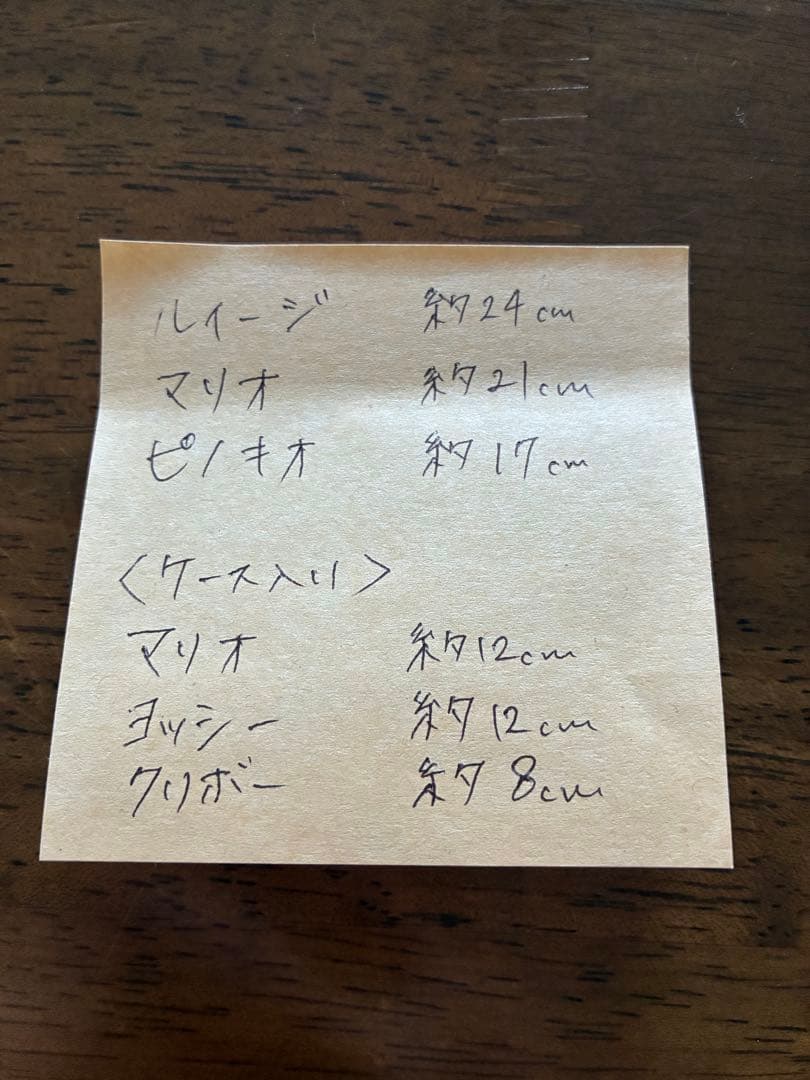 ルイージ 約24cm
マリオ 約21cm
ピノキオ 約17cm
〈ケース入り〉
マリオ 約12cm
ヨッシー 約12cm
クリボー 約8cm